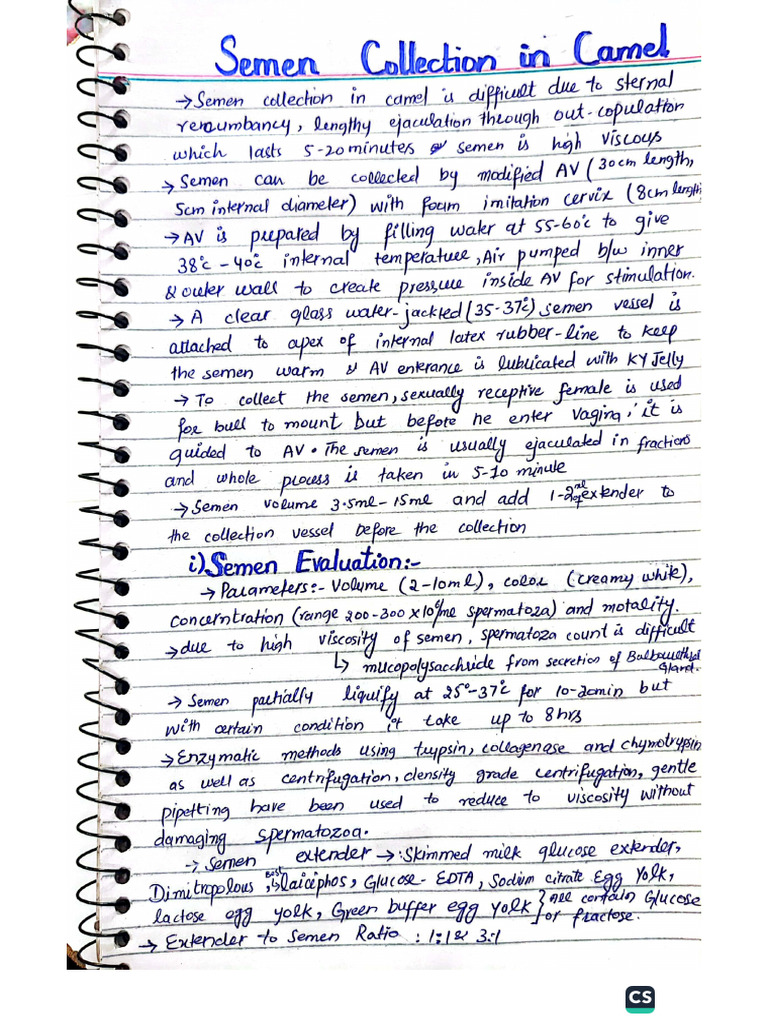 Semen Collection in Camel
→ Semen collection in camel is difficult due to sternal
recumbancy, lengthy ejaculation through out-copulation
which lasts 5-20 minutes & semen is high viscous
→ Semen can be collected by modified AV (30cm length,
5cm internal diameter) with foam imitation cervix (8cm length)
→ AV is prepared by filling water at 55-60°c to give
38°c - 40°c internal temperature, Air pumped b/w inner
& outer wall to create pressure inside AV for stimulation.
→ A clear glass water-jackted (35-37°c) semen vessel is
attached to apex of internal latex rubber-line to keep
the semen warm & AV enterance is lublicated with KY Jelly
→ To collect the semen, sexually receptive female is used
for bull to mount but before he enter vagina, it is
guided to AV. The semen is usually ejaculated in fractions
and whole process is taken in 5-10 minute
→ Semen volume 3.5ml - 15ml and add 1-2ml of extender to
the collection vessel before the collection
i) Semen Evaluation:-
→ Parameters:- Volume (2-10ml), color (creamy white),
Concerntration (range 200-300 x 10⁶/ml spermatoza) and motality.
→ due to high viscosity of semen, spermatoza count is difficult
↳ mucopolysacchride from secretion of Bulbourethral
Gland.
→ Semen partially liquify at 25°-37°c for 10-20min but
with certain condition it take up to 8hrs
→ Enzymatic methods using trypsin, collagenase and chymotrypsin
as well as centrifugation, density grade centrifugation, gentle
pipetting have been used to reduce to viscosity without
damaging spermatozoa.
→ Semen extender → : Skimmed milk glucose extender,
Dimitropolous, Best ↳ laiciphos, Glucose-EDTA, Sodium citrate Egg Yolk,
lactose egg yolk, Green buffer egg yolk } All contain Glucose
or fractose.
→ Extender to Semen Ratio : 1:1 & 3:1
CS